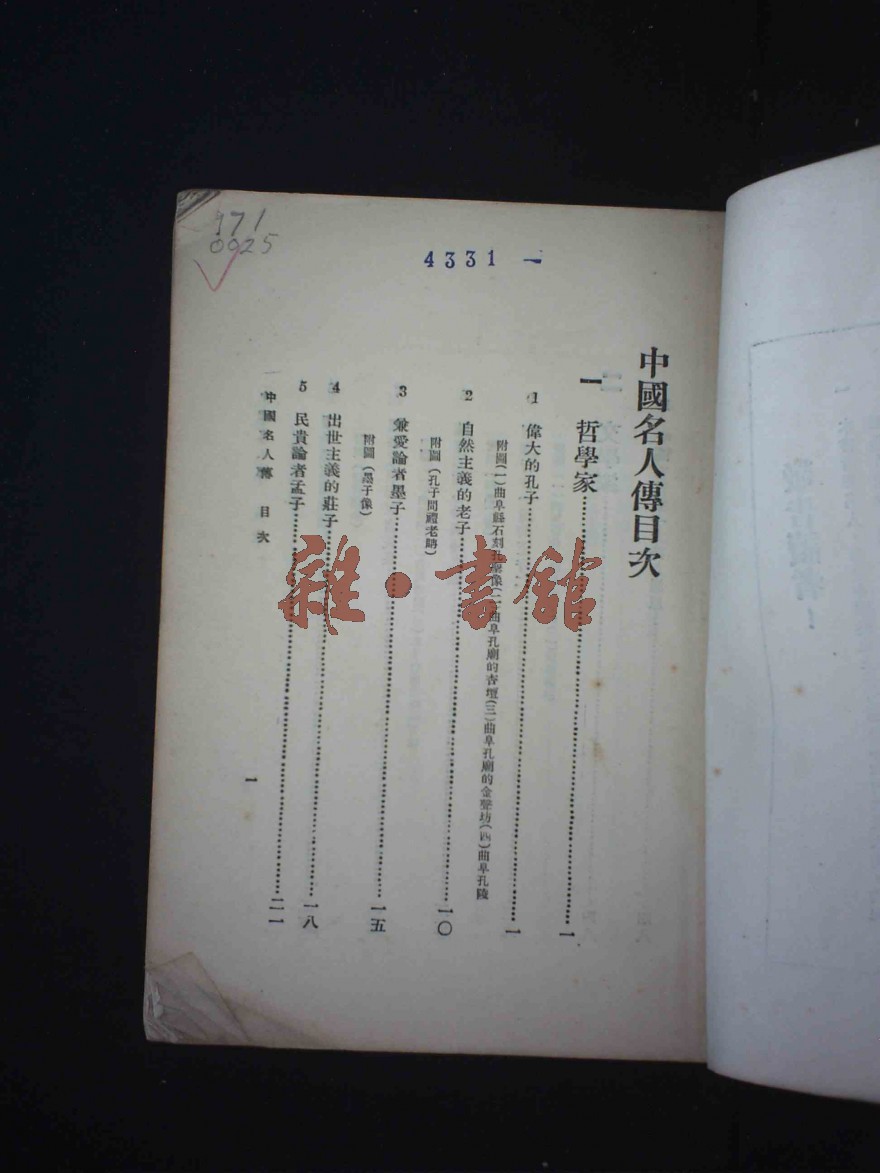 971
0025
4331 一
中國名人傳目次
一 哲學家……一
1 偉大的孔子……一
附圖(一)曲阜縣石刻孔像(二)曲阜孔廟的杏壇(三)曲阜孔廟的金聲坊(四)曲阜孔陵
2 自然主義的老子……一〇
附圖(孔子問禮老聃)
3 兼愛論者墨子……一五
附圖(墨子像)
4 出世主義的莊子……一八
5 民貴論者孟子……二一
中國名人傳 目次
1
雜·書館